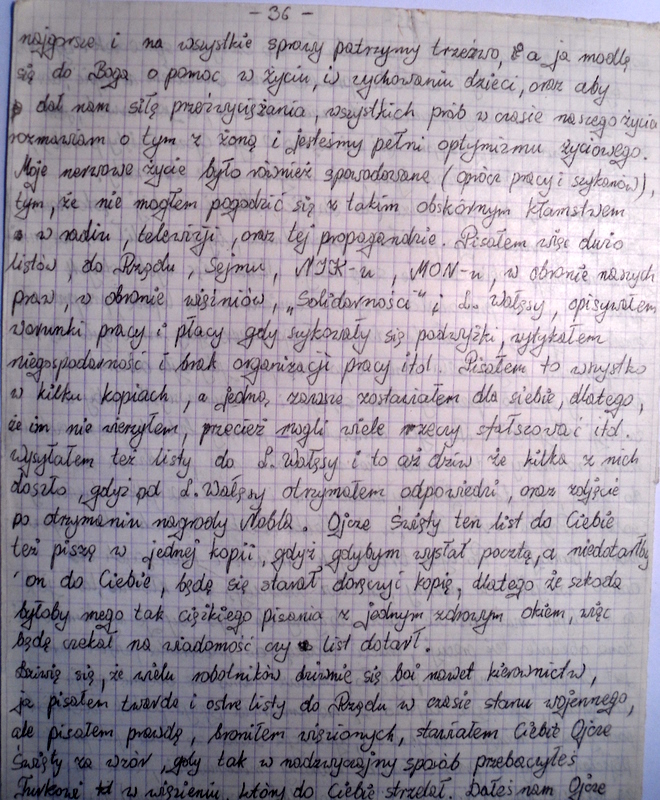 - 36 -
najgorsze i na wszystkie sprawy patrzymy trzeźwo, a ja modlę
się do Boga o pomoc w życiu, i w wychowaniu dzieci, oraz aby
dał nam siłę przezwyciężania, wszystkich prób w czasie naszego życia
rozmawiam o tym z żoną i jesteśmy pełni optymizmu życiowego.
Moje nerwowe życie było również spowodowane (oprócz pracy i szykanów),
tym, że nie mogłem pogodzić się z takim obskórnym kłamstwem
w radiu, telewizji, oraz tej propagandzie. Pisałem więc dużo
listów, do Rządu, Sejmu, NIK-u, MON-u, w obronie naszych
praw, w obronie więźniów, „Solidarności" i L. Wałęsy, opisywałem
warunki pracy i płacy gdy szykowały się podwyżki, wytykałem
niegospodarność i brak organizacji pracy itd. Pisałem to wszystko
w kilku kopiach, a jedną, zawsze zostawiałem dla siebie, dlatego,
że im nie wierzyłem, przecież mogli wiele rzeczy sfałszować itd.
wysyłałem też listy do L. Wałęsy i to aż dziw że kilka z nich
doszło, gdyż od L. Wałęsy otrzymałem odpowiedzi, oraz zdjęcie
po otrzymaniu nagrody Nobla. Ojcze Święty ten list do Ciebie
też piszę w jednej kopii, gdyż gdybym wysłał pocztą, a niedotarłby
on do Ciebie, będę się starał doręczyć kopię, dlatego że szkoda
byłoby mego tak ciężkiego pisania z jednym zdrowym okiem, więc
będę czekał na wiadomość czy list dotarł.
Dziwię się, że wielu robotników dziwnie się boi nawet kierownictw,
ja pisałem twarde i ostre listy do Rządu w czasie stanu wojennego,
ale pisałem prawdę, broniłem więzionych, stawiałem Ciebie Ojcze
Święty za wzór, gdy tak w nadzwyczajny sposób przebaczyłeś
Turkowi w więzieniu, który do Ciebie strzelał. Dałeś nam Ojcze